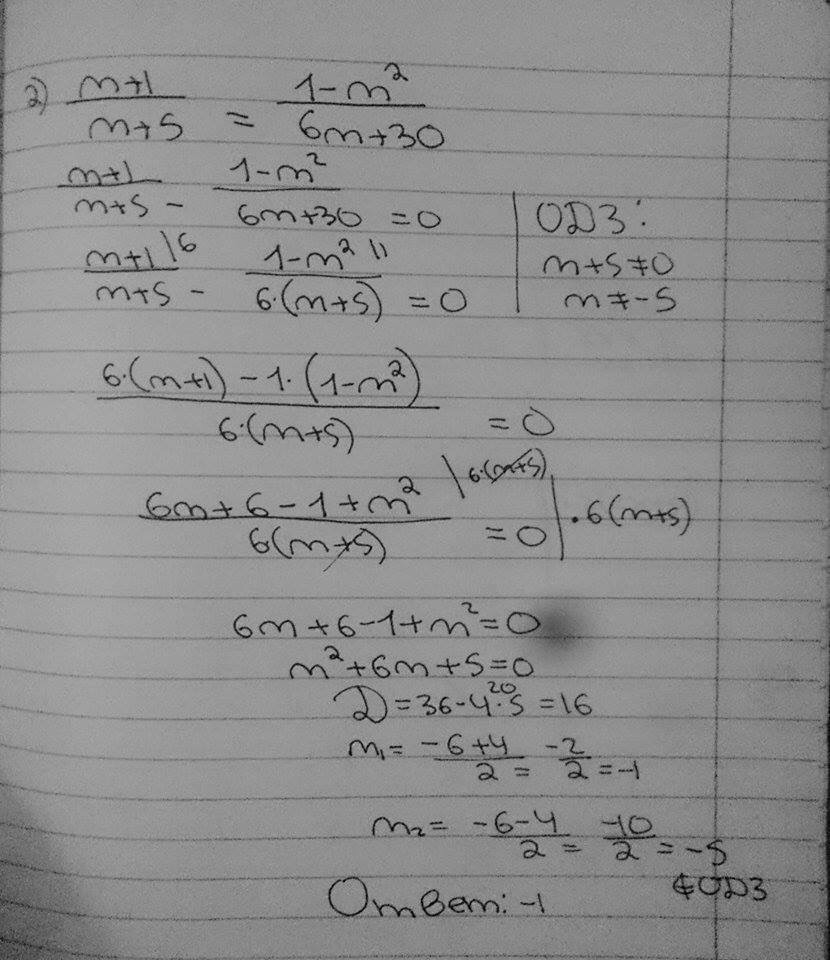 2) m+1/m+5 = 1-m²/6m+30
m+1/m+5 - 1-m²/6m+30 =0
ОДЗ:
m+5≠0
m≠-5
m+1\6/m+5 - 1-m² \1/6·(m+5) =0
6·(m+1)-1·(1-m²)/6·(m+5) =0
6m+6-1+m² \6·(m+5)/6(m+5) =0 |·6(m+5)
6m+6-1+m²=0
m²+6m+5=0
D=36-4·5 20 =16
m₁= -6+4/2 = -2/2 =-1
m₂= -6-4/2 = -10/2 = -5
∉ОДЗ
Ответ: -1